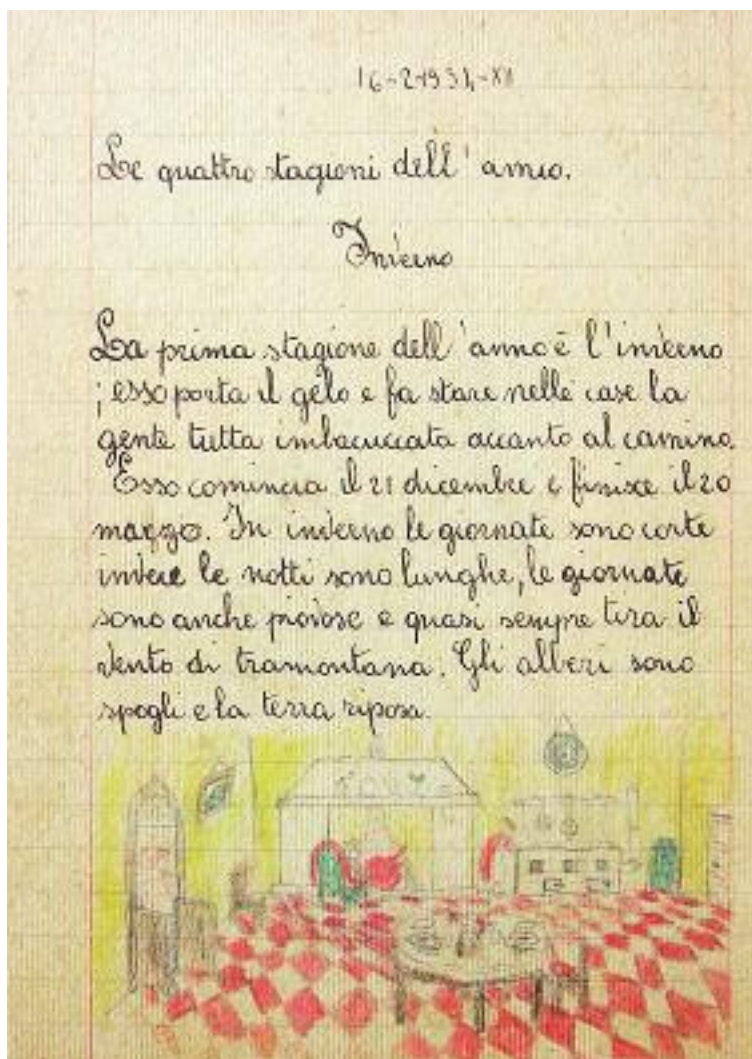 16-2-1934-XII
Le quattro stagioni dell'anno.
Inverno
La prima stagione dell'anno è l'inverno
; esso porta il gelo e fa stare nelle case la
gente tutta imbacuccata accanto al camino.
Esso comincia il 21 dicembre e finisce il 20
marzo. In inverno le giornate sono corte
invece le notti sono lunghe, le giornate
sono anche piovose e quasi sempre tira il
vento di tramontana. Gli alberi sono
spogli e la terra riposa.